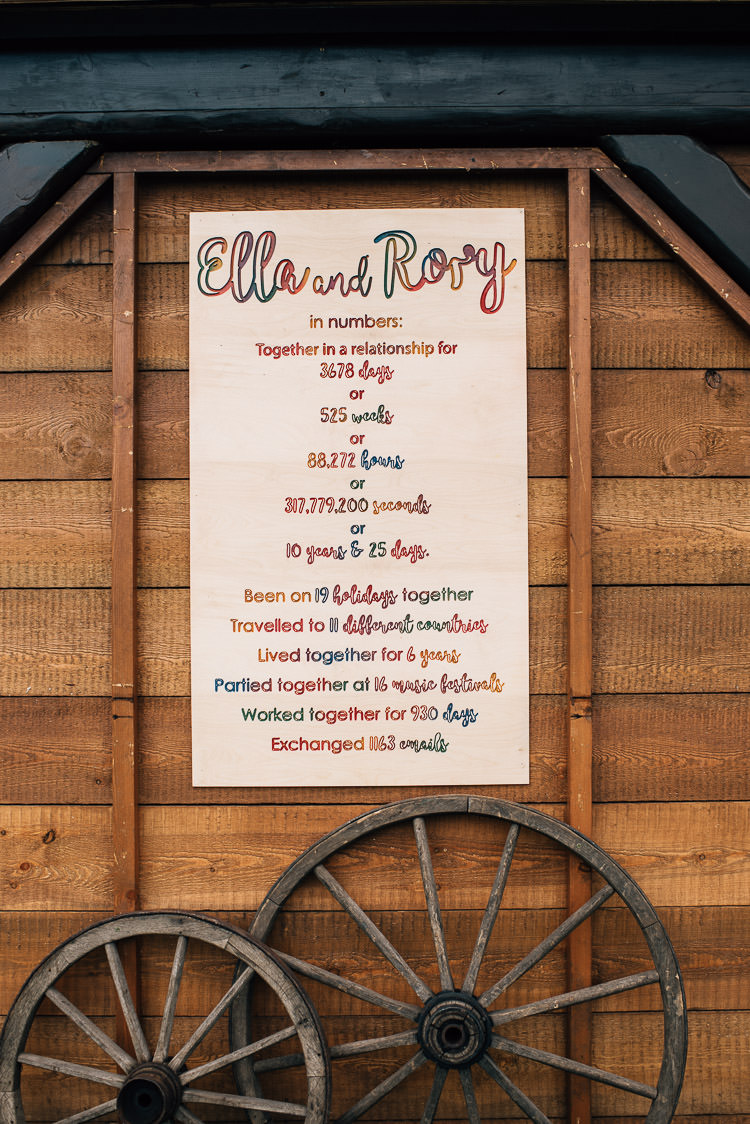 Ella and Rory
in numbers:
Together in a relationship for
3678 days
or
525 weeks
or
88,272 hours
or
317,779,200 seconds
or
10 years & 25 days.
Been on 19 holidays together
Travelled to 11 different countries
Lived together for 6 years
Partied together at 16 music festivals
Worked together for 930 days
Exchanged 1163 emails